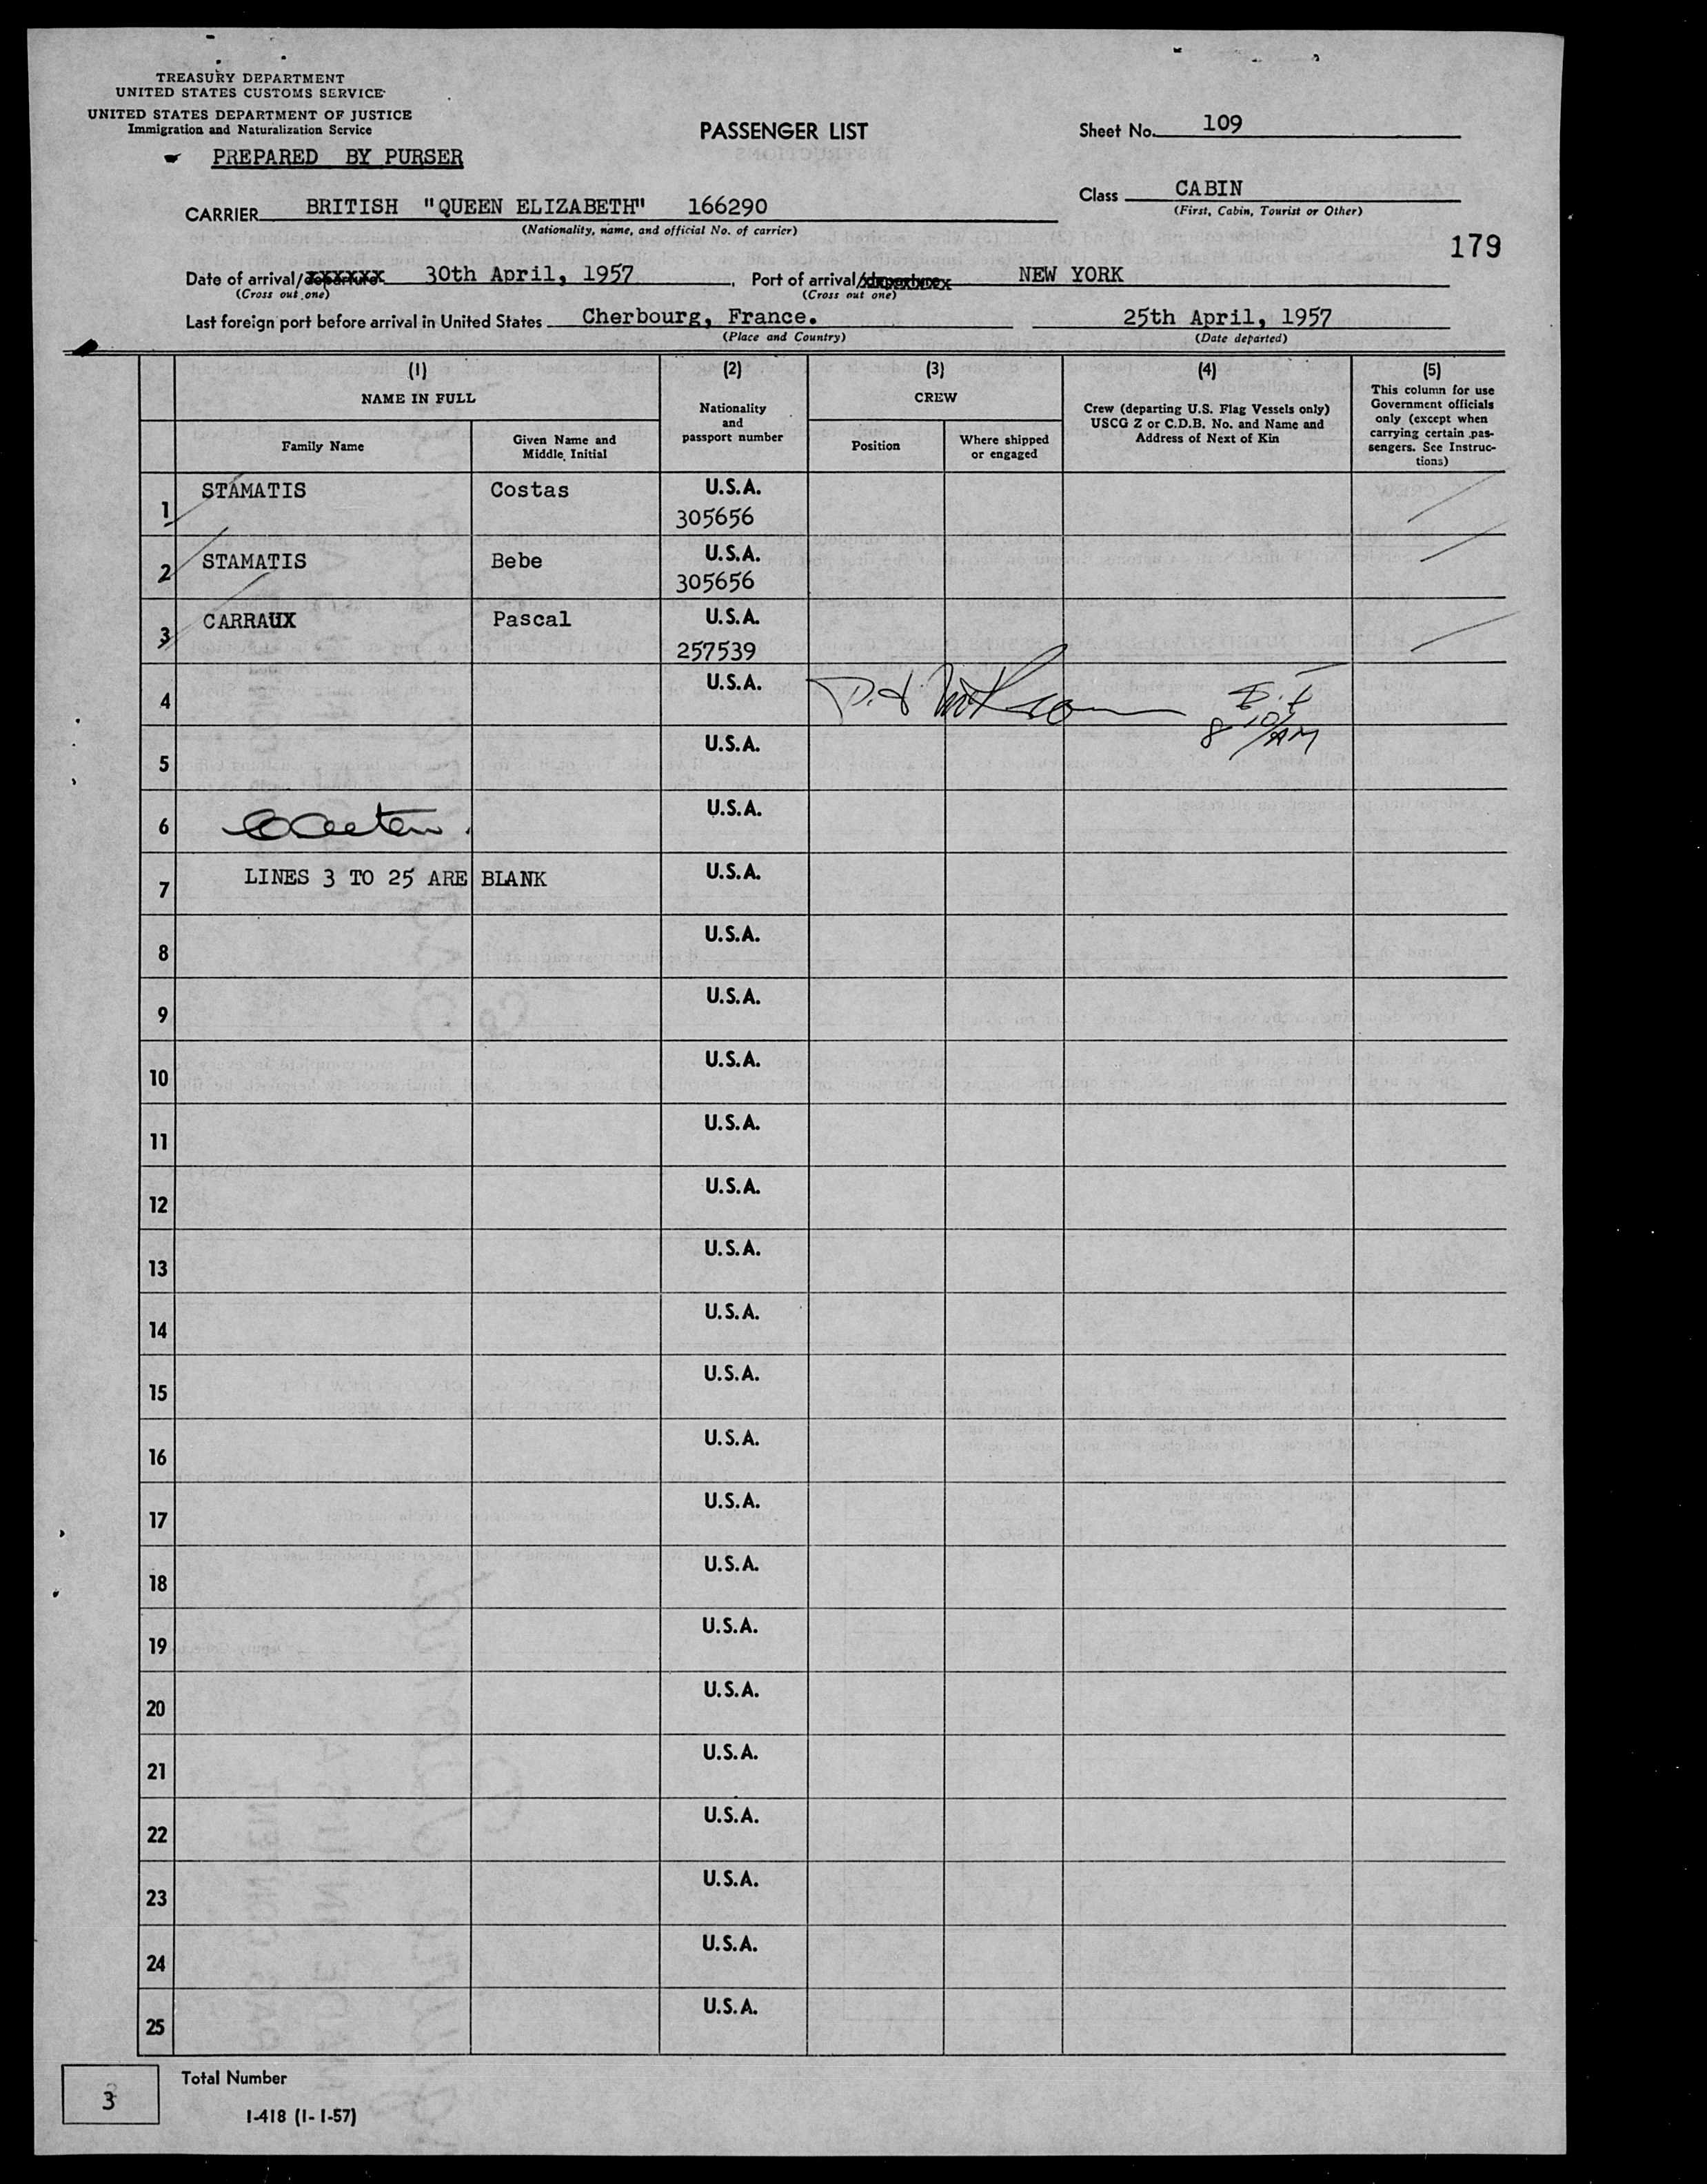 TREASURY DEPARTMENT
UNITED STATES CUSTOMS SERVICE
UNITED STATES DEPARTMENT OF JUSTICE
Immigration and Naturalization Service
PREPARED BY PURSER
PASSENGER LIST
Sheet No. 109
Class CABIN
(First, Cabin, Tourist or Other)
CARRIER BRITISH "QUEEN ELIZABETH" 166290
(Nationality, name, and official No. of carrier)
179
Date of arrival/departure 30th April, 1957. Port of arrival/departure NEW YORK
(Cross out one) (Cross out one)
Last foreign port before arrival in United States Cherbourg, France. 25th April, 1957
(Place and Country) (Date departed)
(1) (2) (3) (4) (5)
NAME IN FULL
Family Name
Given Name and
Middle Initial
Nationality
and
passport number
CREW
Position
Where shipped
or engaged
Crew (departing U.S. Flag Vessels only)
USCG Z or C.D.B. No. and Name and
Address of Next of Kin
This column for use
Government officials
only (except when
carrying certain pas-
sengers. See Instruc-
tions)
1 STAMATIS Costas U.S.A.
305656
2 STAMATIS Bebe U.S.A.
305656
3 CARRAUX Pascal U.S.A.
257539
4 U.S.A.
8 10/AM
5 U.S.A.
6 U.S.A.
7 LINES 3 TO 25 ARE BLANK U.S.A.
8 U.S.A.
9 U.S.A.
10 U.S.A.
11 U.S.A.
12 U.S.A.
13 U.S.A.
14 U.S.A.
15 U.S.A.
16 U.S.A.
17 U.S.A.
18 U.S.A.
19 U.S.A.
20 U.S.A.
21 U.S.A.
22 U.S.A.
23 U.S.A.
24 U.S.A.
25 U.S.A.
3 Total Number
I-418 (1-1-57)